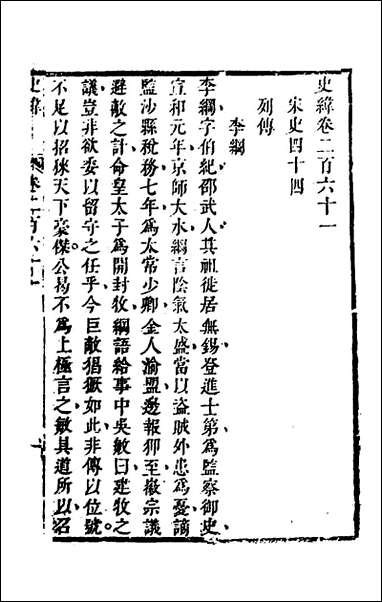 史緯卷二百六十一
宋史四十四
列傳
李綱
李綱字伯紀邵武人其祖徙居無錫登進士第爲監察御史
宣和元年京師大水綱言陰氣太盛當以盜賊外患爲憂謫
監沙縣稅務七年爲太常少卿金人渝盟邊報狎至徽宗議
避敵之計命皇太子爲開封牧綱語給事中吳敏曰建牧之
議豈非欲委以留守之任乎今巨敵猖獗如此非傳以位號
不足以招徠天下豪傑公曷不爲上極言之敏具道所以召
史緯
卷二百六十一
一